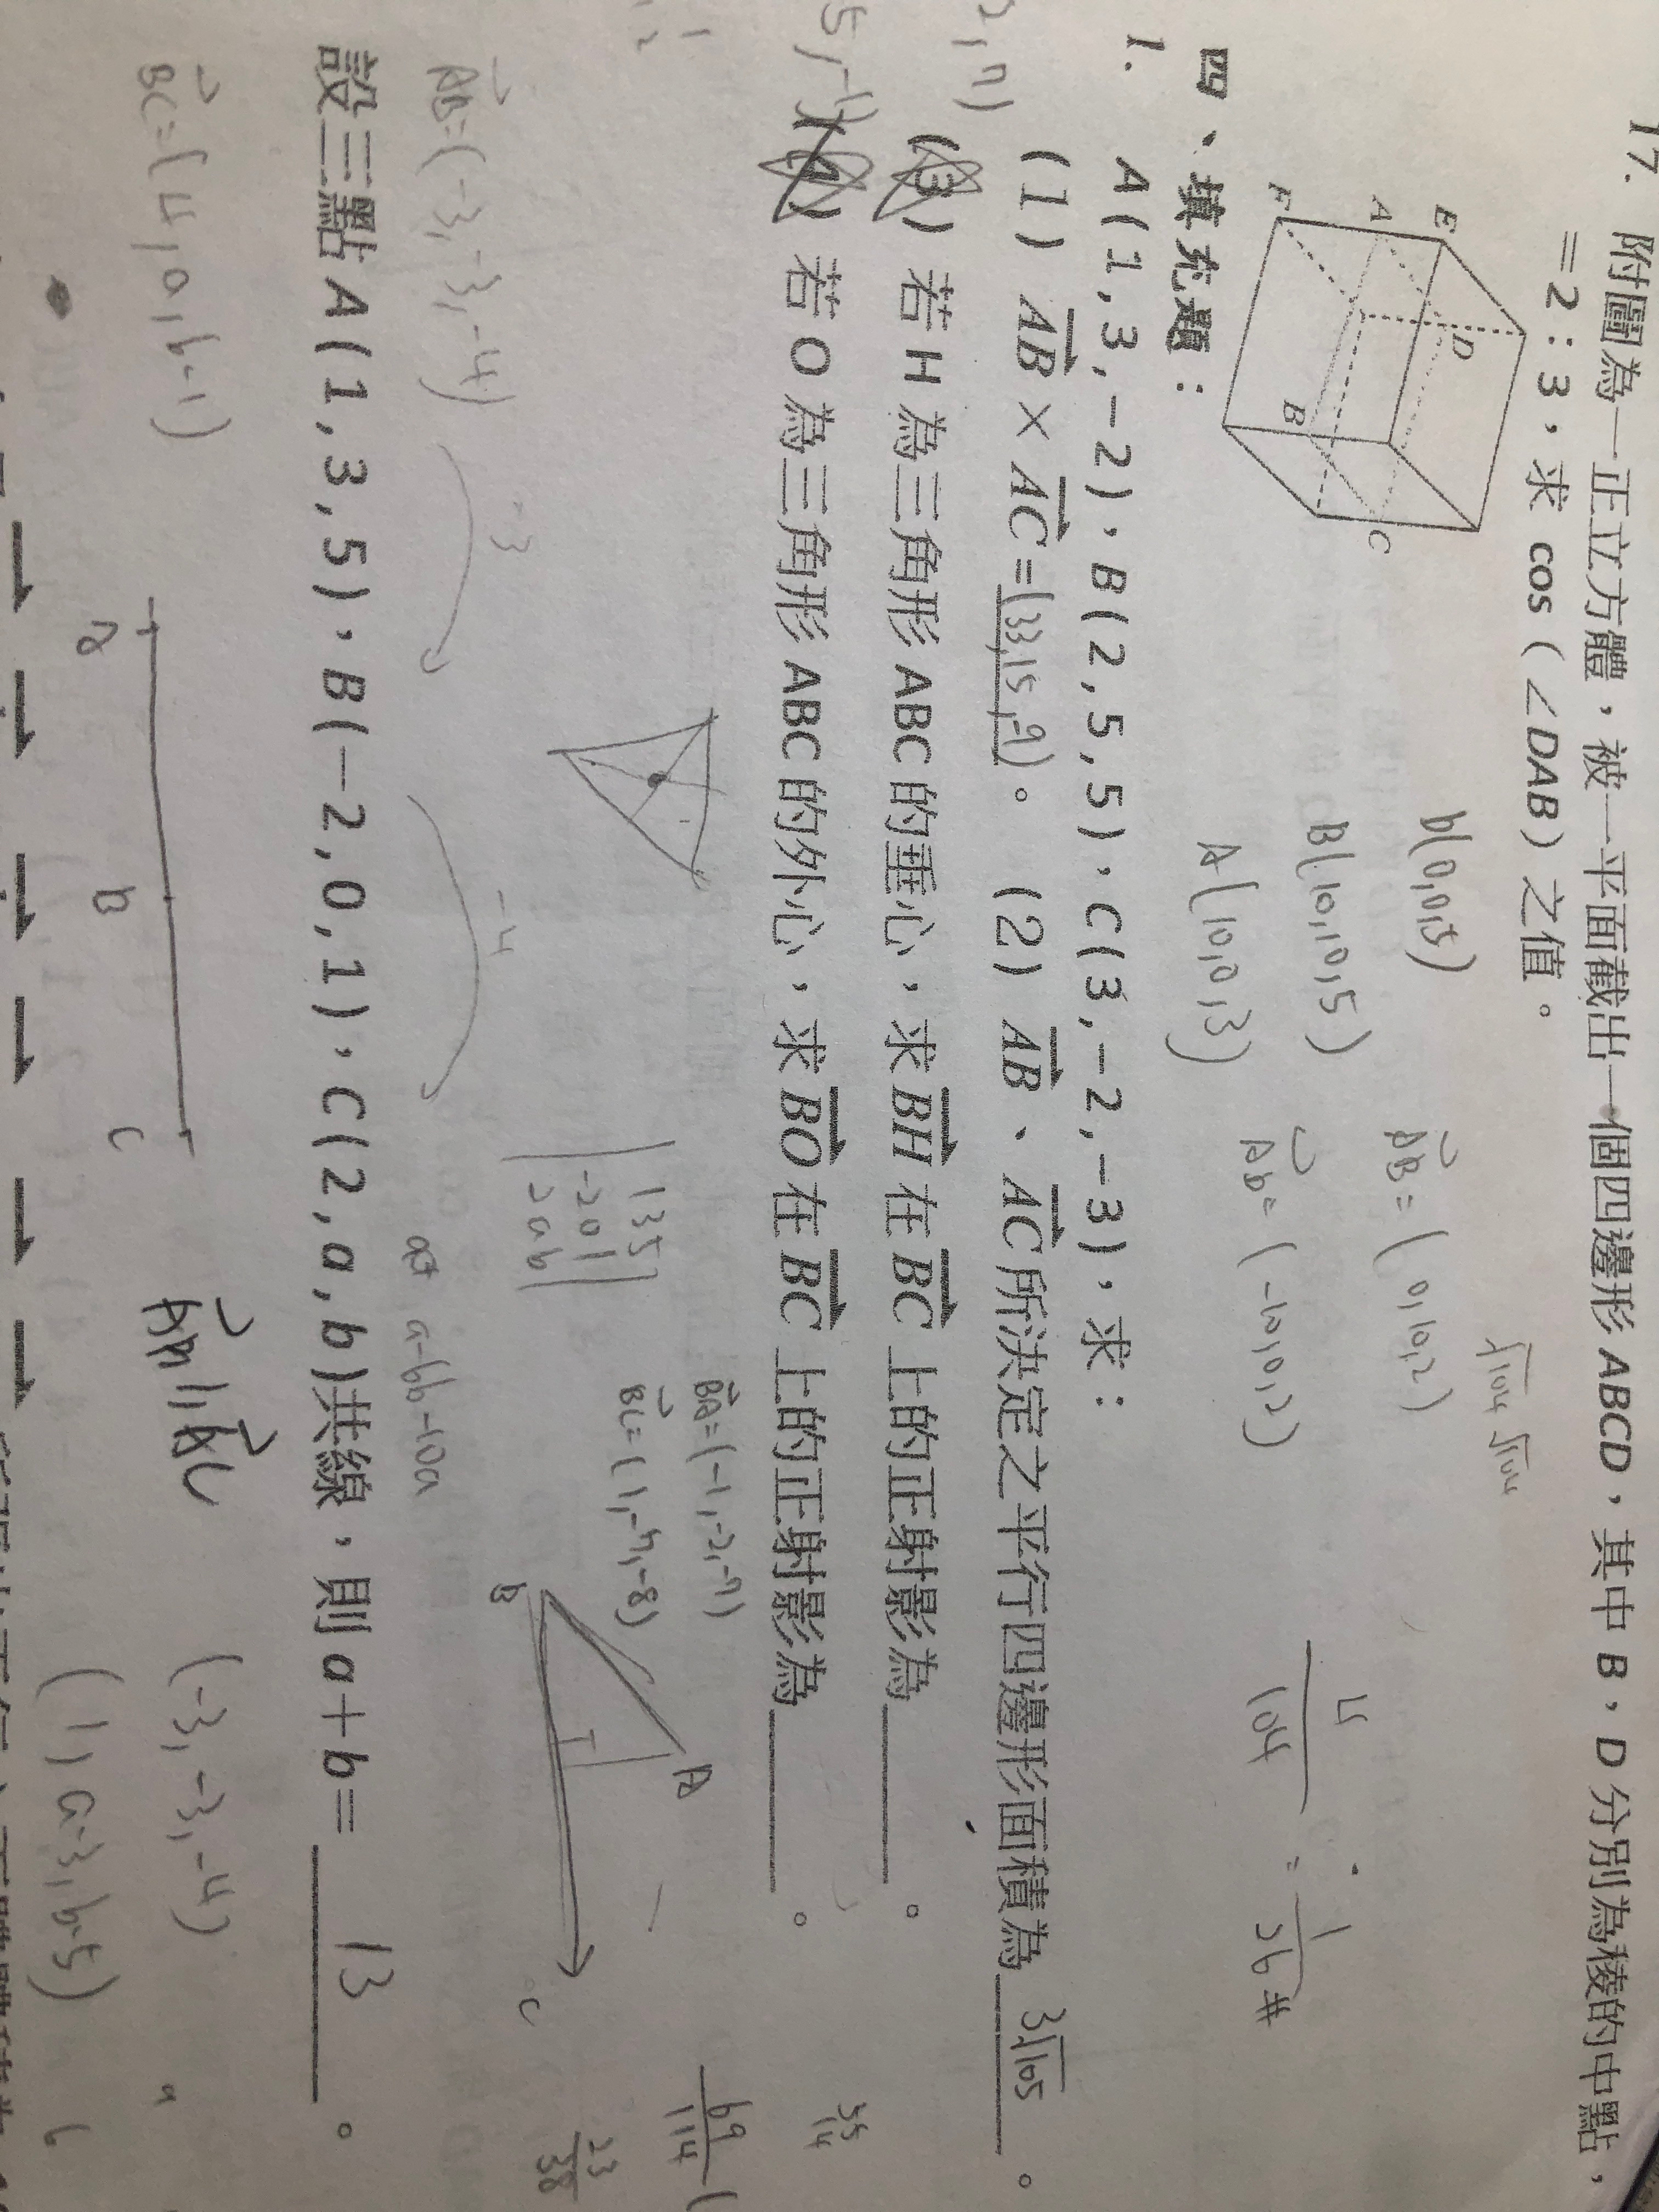 17. 附圖為一正立方體，被一平面截出一個四邊形 ABCD，其中 B，D 分別為稜的中點，
=2：3，求 cos（∠DAB）之值。
E
A
F
D
B
C
D(0,0,5)
B(10,10,5)
A(10,0,3)
AB=(0,10,2)
AD=(-10,0,2)
√104 √104
4
104
=
1
26
#
四、填充題：
1. A(1,3,-2)，B(2,5,5)，C(3,-2,-3)，求：
(1) AB × AC = (33,15,-9)。 (2) AB、AC 所決定之平行四邊形面積為 3√105 。
(3) 若 H 為三角形 ABC 的垂心，求 BH 在 BC 上的正射影為 。
(4) 若 O 為三角形 ABC 的外心，求 BO 在 BC 上的正射影為 。
BA=(-1,-2,-7)
BC=(1,-7,-8)
A
B
C
69
114
23
38
1 3 5
-2 0 1
2 a b
a-6b-10a
AB=(-3,-3,-4)
-3
-4
設三點 A(1,3,5)，B(-2,0,1)，C(2,a,b)共線，則 a+b= 13 。
BC=(4,a,b-1)
A
B
C
AB∥AC
(-3,-3,-4)
(1,a-3,b-5)